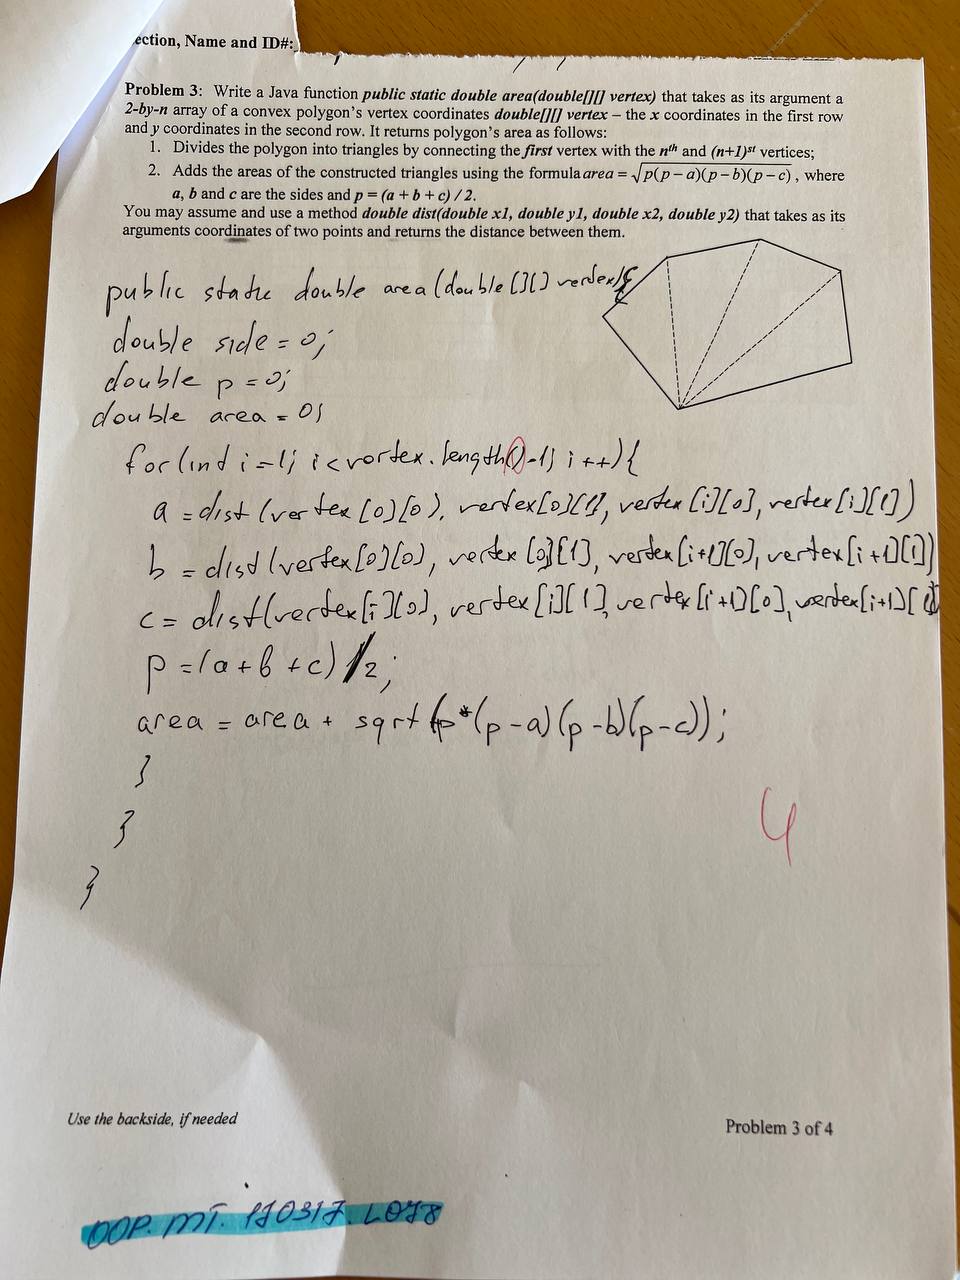 ection, Name and ID#:
Problem 3: Write a Java function public static double area(double[][] vertex) that takes as its argument a
2-by-n array of a convex polygon's vertex coordinates double[][] vertex – the x coordinates in the first row
and y coordinates in the second row. It returns polygon's area as follows:
1. Divides the polygon into triangles by connecting the first vertex with the nth and (n+1)st vertices;
2. Adds the areas of the constructed triangles using the formula area = √p(p – a)(p – b)(p – c), where
a, b and c are the sides and p = (a + b + c) / 2.
You may assume and use a method double dist(double x1, double y1, double x2, double y2) that takes as its
arguments coordinates of two points and returns the distance between them.
public static double area (double [][] vertex){
double side = 0;
double p = 0;
double area = 0;
for (int i = 1; i < vertex.length()-1; i++){
a = dist (vertex [0][0], vertex[0][1], vertex [i][0], vertex[i][1])
b = dist (vertex[0][0], vertex [0][1], vertex[i+1][0], vertex[i+1][1])
c = dist(vertex[i][0], vertex [i][1], vertex [i+1][0], vertex[i+1][1])
p = (a + b + c) / 2;
area = area + sqrt (p*(p-a)(p-b)(p-c));
}
4
}
}
Use the backside, if needed
Problem 3 of 4
OOP. MT. 170317. L078